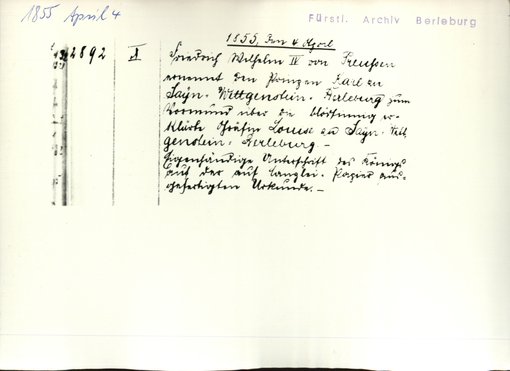 1855 April 4
Fürstl. Archiv Berleburg
1855, den 4 April
2892
Friedrich Wilhelm IV von Preussen
ernennt den Prinzen Karl zu
Sayn-Wittgenstein-Berleburg zum
Vormund über die blödsinnig er-
klärte Gräfin Louise zu Sayn-Witt
genstein-Berleburg.-
Eigenhändige Unterschrift des Königs
auf der auf Canzlei-Papier aus-
gefertigten Urkunde.-